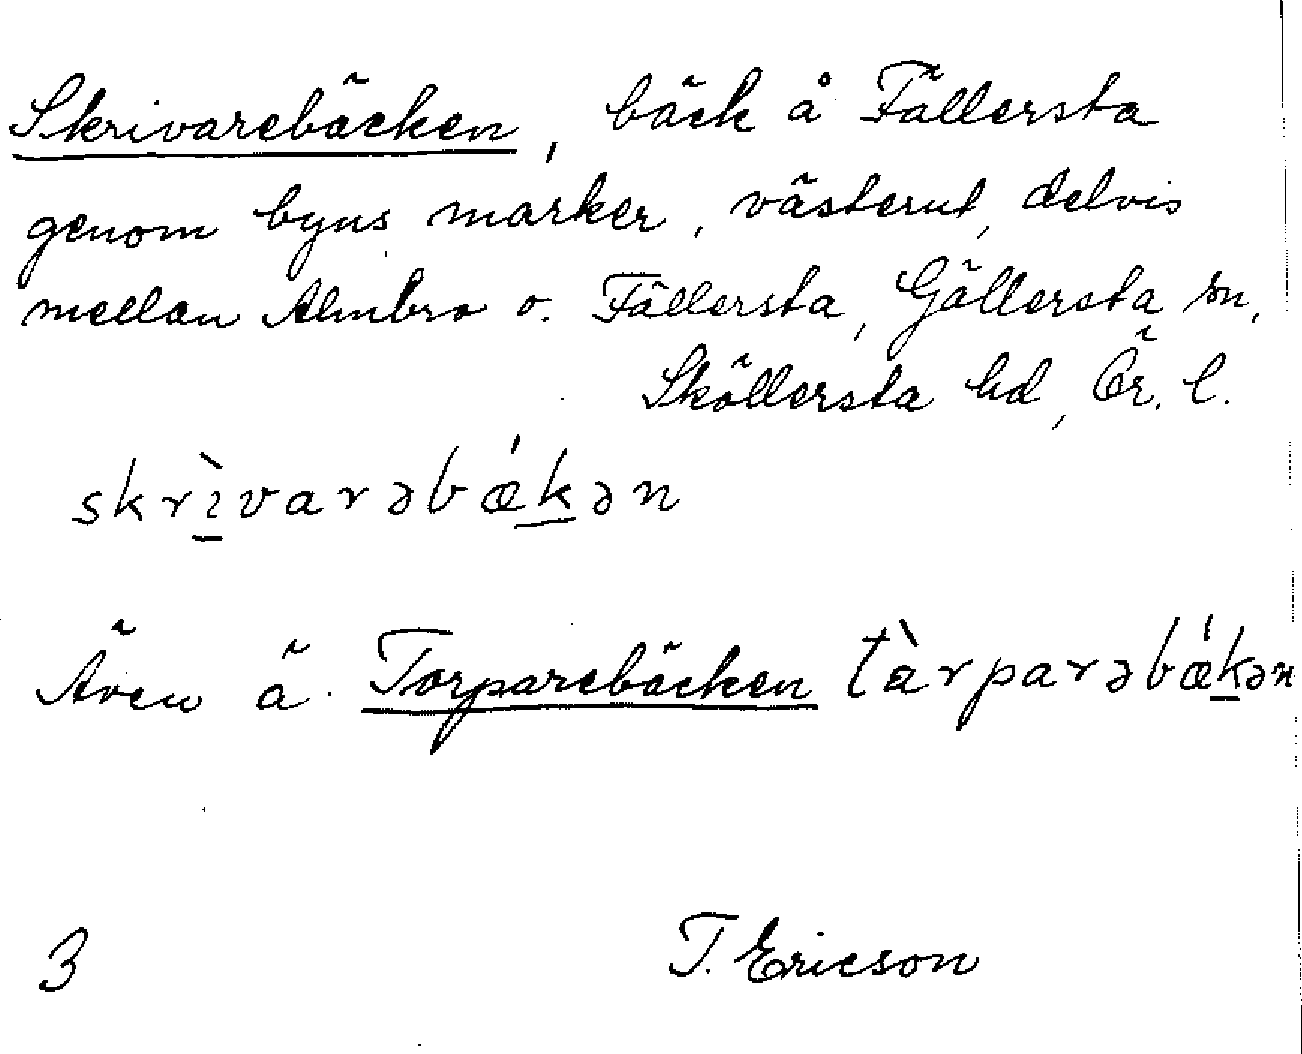 Skrivarebäcken, bäck å Fällersta
genom byns marker, västerut, delvis
mellan Almbro o. Fällersta, Gällersta sn,
Sköllersta hd, Ör. l.
skrìvarəbǽkən
Även ä. Torparebäcken tàrparəbǽkən
3 T. Ericson